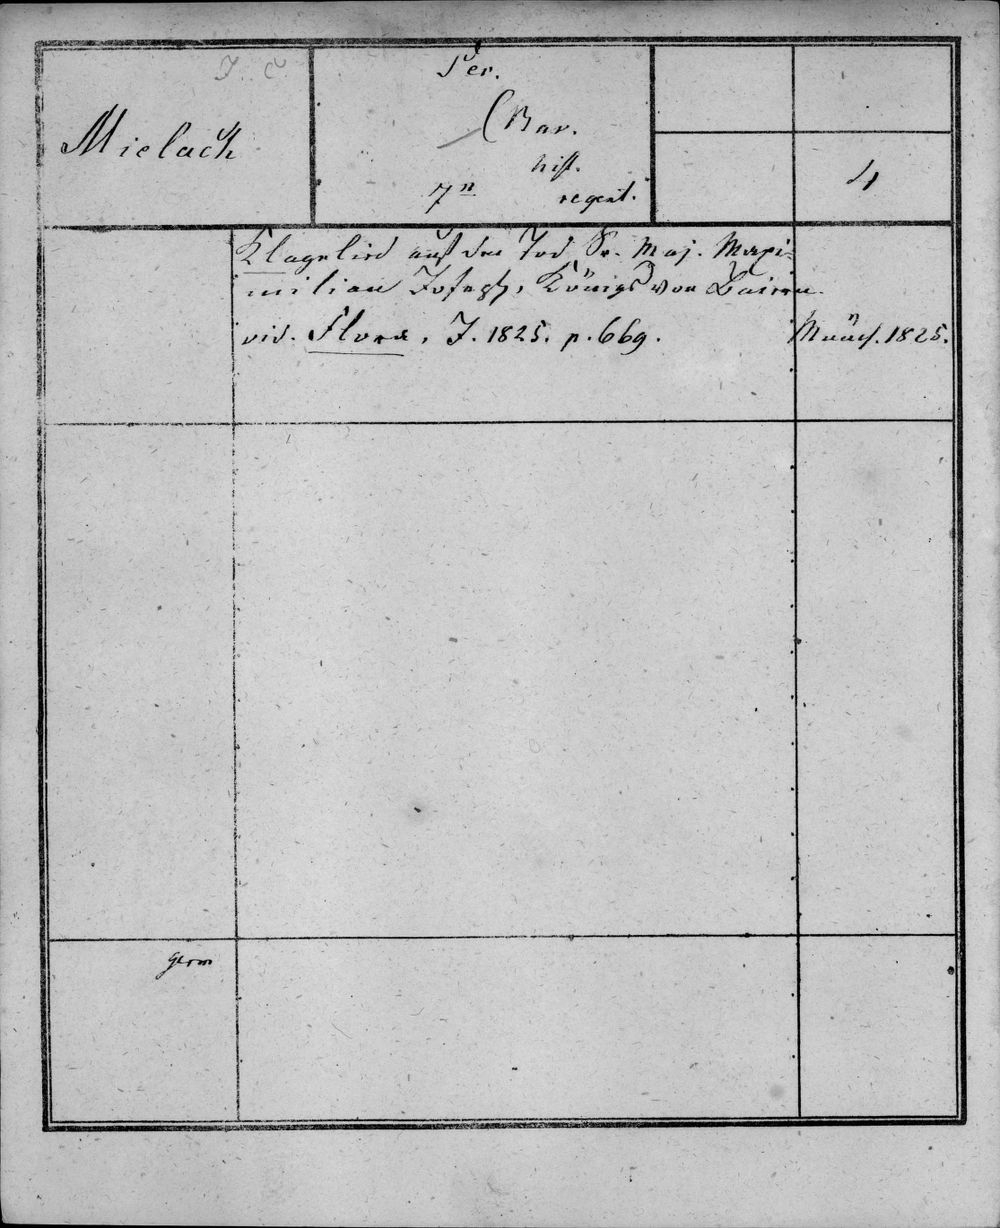 J. C
Mielach
Per.
(Bav.
hist.
7n
regent.
4
Klagelied auf den Tod Sr. Maj. Maxi-
milian Joseph, Königs von Baiern.
vid. Flora, J. 1825. p. 669.
Münch. 1825.
germ